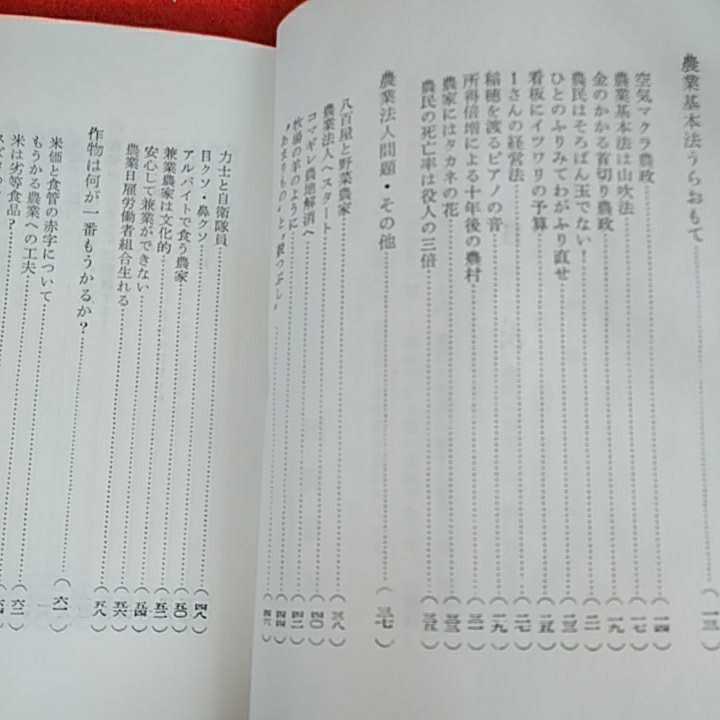 農業基本法うらおもて……(一三)
空気マクラ農政……(一四)
農業基本法は山吹法……(一七)
金のかかる首切り農政……(一九)
農民はそろばん玉でない!……(二一)
ひとのふりみてわがふり直せ……(二三)
看板にイツワリの予算……(二五)
Iさんの経営法……(二七)
稲穂を渡るピアノの音……(二九)
所得倍増による十年後の農村……(三一)
農家にはタカネの花……(三三)
農民の死亡率は役人の三倍……(三五)
農業法人問題・その他……(三七)
八百屋と野菜農家……(三八)
農業法人へスタート……(四〇)
コマギレ農地解消へ……(四二)
牧場の羊のように……(四四)
〝あまりもの〟と〝穀つぶし〟……(四六)
力士と自衛隊員
目クソ・鼻クソ……(四八)
アルバイトで食う農家……(五〇)
兼業農家は文化的……(五二)
安心して兼業ができない……(五四)
農業日雇労働者組合生れる……(五六)
作物は何が一番もうかるか?……(五八)
米価と食管の赤字について……(六一)
もうかる農業への工夫……(六二)
米は劣等食品?